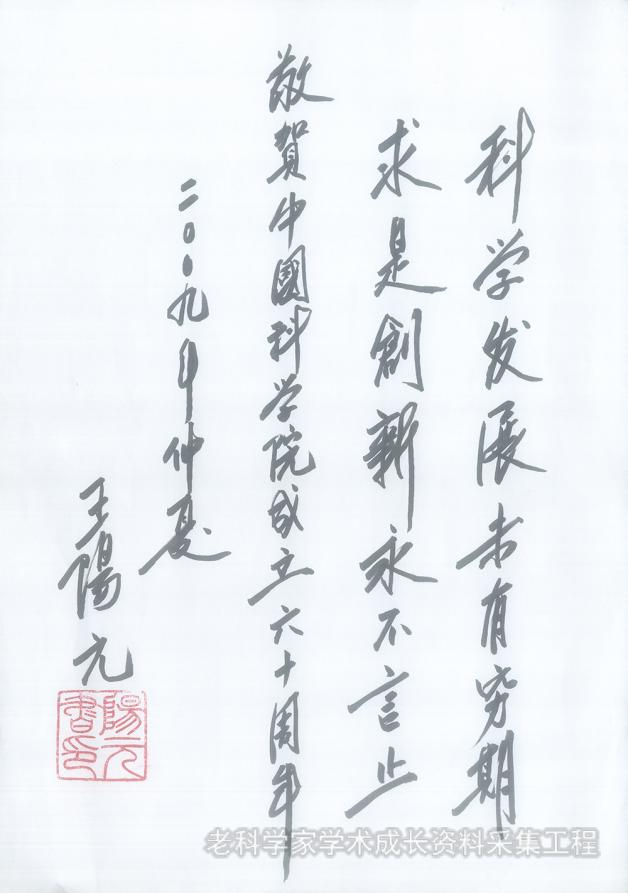 科学发展未有穷期
求是創新永不言止
敬賀中國科学院成立六十周年
二〇〇九年仲夏
王陽元
陽元書印
老科学家学术成长资料采集工程